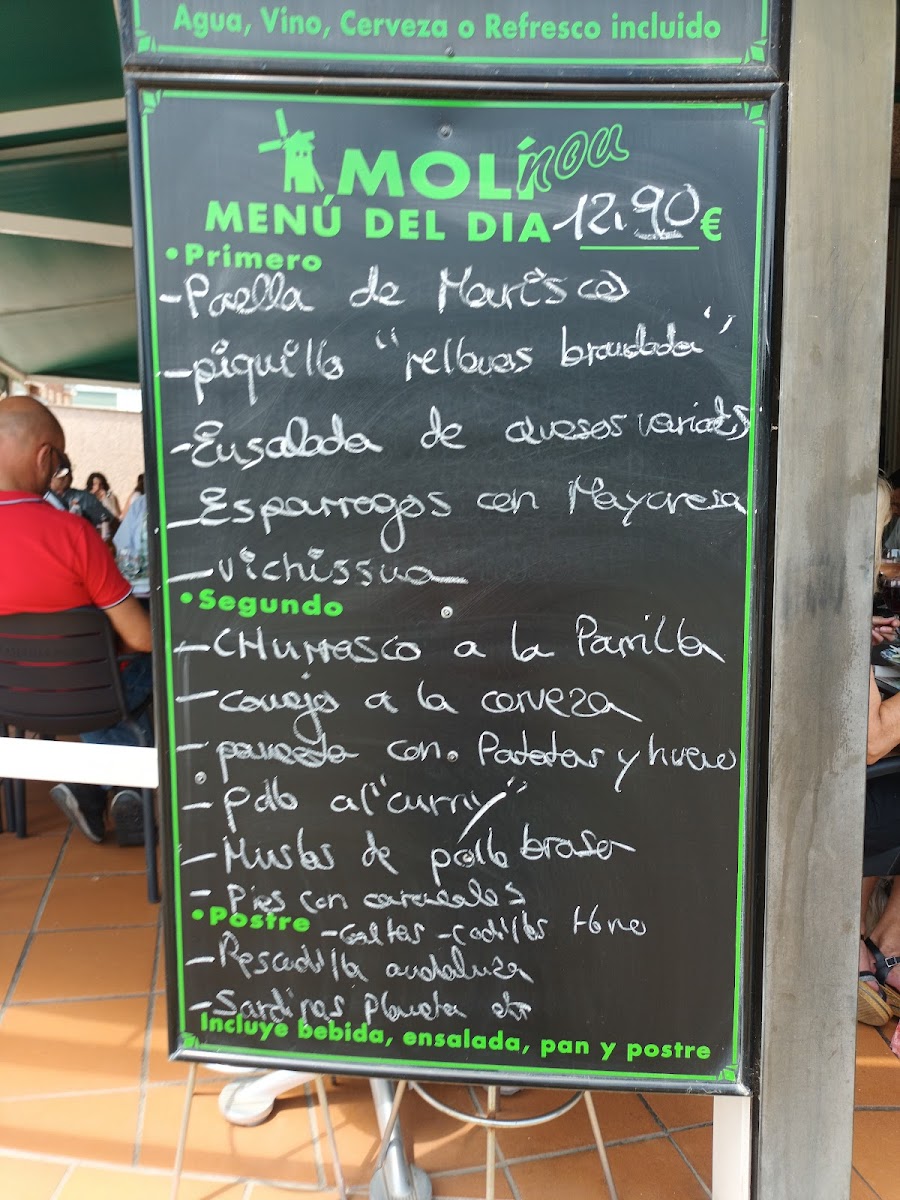 Agua, Vino, Cerveza o Refresco incluido
MOLÍ nou
MENÚ DEL DIA 12.90 €
•Primero
- Paella de Marisco
- piquillo "rellenos brandada"
- Ensalada de quesos variats
- Esparragos con Mayonesa
- vichissua
•Segundo
- CHurrasco a la Parrilla
- conejo a la cerveza
- panceta con. Patatas y huevo
- pollo al "curry"
- Muslos de pollo brasa
- Pies con caracoles
•Postre - Galtas - codillos Horno
- Pescadilla andaluza
- Sardinas Plancha
Incluye bebida, ensalada, pan y postre